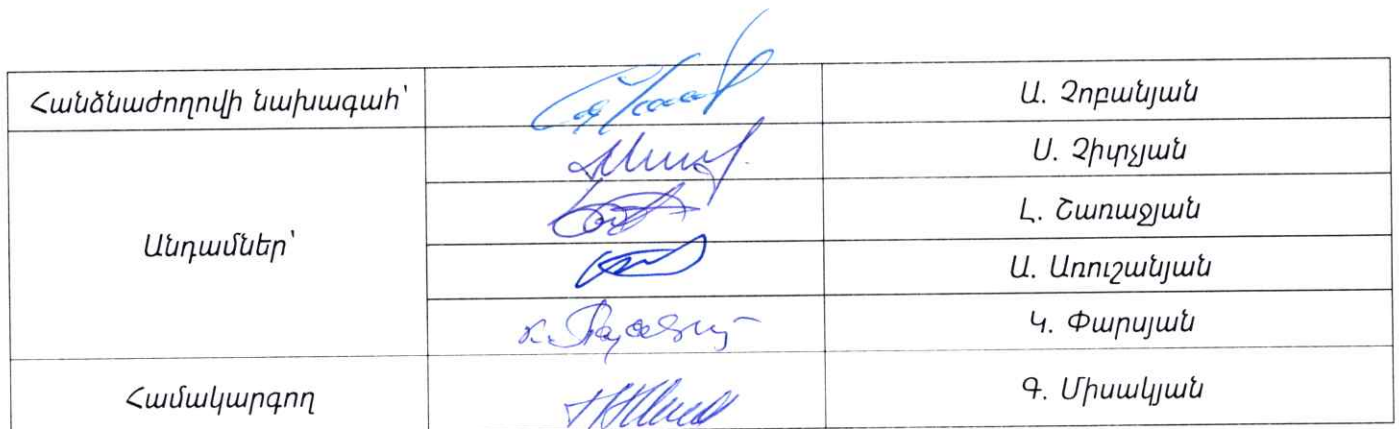 Հանձնաժողովի նախագահ՝ Ա. Չոբանյան
Ս. Չիւրչյան
Լ. Շառաջյան
Անդամներ՝
Ա. Առուշանյան
Կ. Փարսյան
Համակարգող Գ. Միսակյան